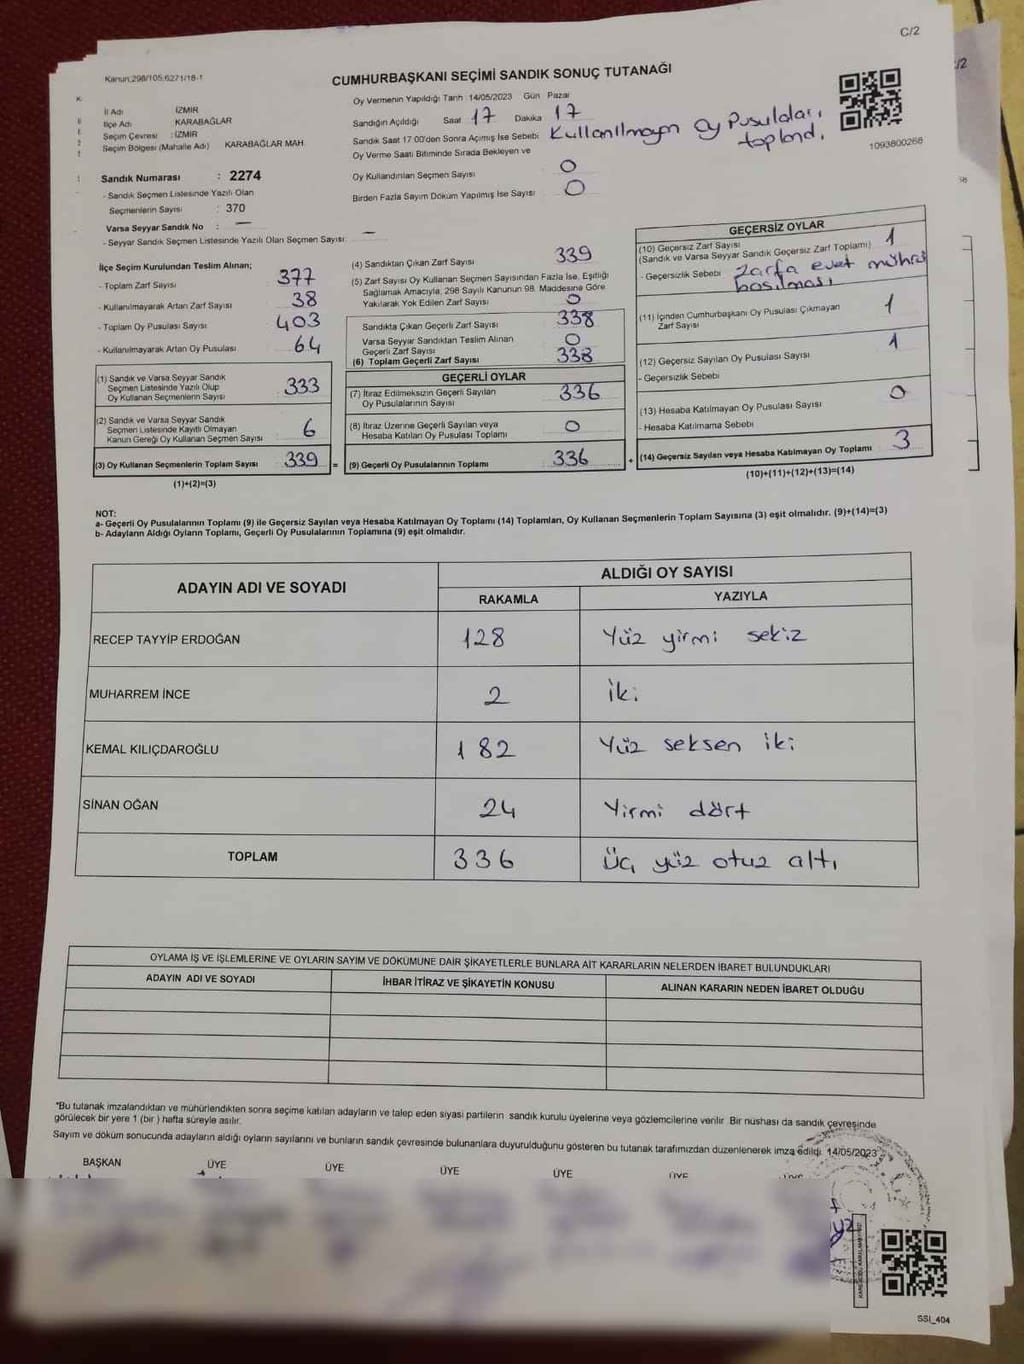 C/2
Kanun:298/105,6271/18-1
CUMHURBAŞKANI SEÇİMİ SANDIK SONUÇ TUTANAĞI
İl Adı İZMİR
İlçe Adı KARABAĞLAR
Seçim Çevresi : İZMİR
Seçim Bölgesi (Mahalle Adı) KARABAĞLAR MAH.
Oy Vermenin Yapıldığı Tarih :14/05/2023 Gün Pazar
Sandığın Açıldığı Saat 17 Dakika 17
Sandık Saat 17.00'den Sonra Açımış İse Sebebi Kullanılmayan Oy Pusulaları
toplandı.
Oy Verme Saati Bitiminde Sırada Bekleyen ve
Oy Kullandırılan Seçmen Sayısı 0
Birden Fazla Sayım Döküm Yapılmış İse Sayısı 0
1093800268
Sandık Numarası : 2274
- Sandık Seçmen Listesinde Yazılı Olan
Seçmenlerin Sayısı : 370
Varsa Seyyar Sandık No : —
- Seyyar Sandık Seçmen Listesinde Yazılı Olan Seçmen Sayısı: —
İlçe Seçim Kurulundan Teslim Alınan;
- Toplam Zarf Sayısı 377
- Kullanılmayarak Artan Zarf Sayısı 38
- Toplam Oy Pusulası Sayısı 403
- Kullanılmayarak Artan Oy Pusulası 64
(1) Sandık ve Varsa Seyyar Sandık
Seçmen Listesinde Yazılı Olup
Oy Kullanan Seçmenlerin Sayısı 333
(2) Sandık ve Varsa Seyyar Sandık
Seçmen Listesinde Kayıtlı Olmayan
Kanun Gereği Oy Kullanan Seçmen Sayısı 6
(3) Oy Kullanan Seçmenlerin Toplam Sayısı 339 =
(1)+(2)=(3)
(4) Sandıktan Çıkan Zarf Sayısı 339
(5) Zarf Sayısı Oy Kullanan Seçmen Sayısından Fazla İse, Eşitliği
Sağlamak Amacıyla, 298 Sayılı Kanunun 98. Maddesine Göre
Yakılarak Yok Edilen Zarf Sayısı 0
Sandıkta Çıkan Geçerli Zarf Sayısı 338
Varsa Seyyar Sandıktan Teslim Alınan
Geçerli Zarf Sayısı 0
(6) Toplam Geçerli Zarf Sayısı 338
GEÇERLİ OYLAR
(7) İtiraz Edilmeksizin Geçerli Sayılan
Oy Pusulalarının Sayısı 336
(8) İtiraz Üzerine Geçerli Sayılan veya
Hesaba Katılan Oy Pusulası Toplamı 0
(9) Geçerli Oy Pusulalarının Toplamı 336 +
GEÇERSİZ OYLAR
(10) Geçersiz Zarf Sayısı
(Sandık ve Varsa Seyyar Sandık Geçersiz Zarf Toplamı) 1
- Geçersizlik Sebebi Zarfa evet mührü
basılması
(11) İçinden Cumhurbaşkanı Oy Pusulası Çıkmayan
Zarf Sayısı 1
(12) Geçersiz Sayılan Oy Pusulası Sayısı 1
- Geçersizlik Sebebi
(13) Hesaba Katılmayan Oy Pusulası Sayısı 0
- Hesaba Katılmama Sebebi
(14) Geçersiz Sayılan veya Hesaba Katılmayan Oy Toplamı 3
(10)+(11)+(12)+(13)=(14)
NOT:
a- Geçerli Oy Pusulalarının Toplamı (9) ile Geçersiz Sayılan veya Hesaba Katılmayan Oy Toplamı (14) Toplamları, Oy Kullanan Seçmenlerin Toplam Sayısına (3) eşit olmalıdır. (9)+(14)=(3)
b- Adayların Aldığı Oyların Toplamı, Geçerli Oy Pusulalarının Toplamına (9) eşit olmalıdır.
ADAYIN ADI VE SOYADI ALDIĞI OY SAYISI
RAKAMLA YAZIYLA
RECEP TAYYİP ERDOĞAN 128 Yüz yirmi sekiz
MUHARREM İNCE 2 iki
KEMAL KILIÇDAROĞLU 182 Yüz seksen iki
SİNAN OĞAN 24 Yirmi dört
TOPLAM 336 Üç yüz otuz altı
OYLAMA İŞ VE İŞLEMLERİNE VE OYLARIN SAYIM VE DÖKÜMÜNE DAİR ŞİKAYETLERLE BUNLARA AİT KARARLARIN NELERDEN İBARET BULUNDUKLARI
ADAYIN ADI VE SOYADI İHBAR İTİRAZ VE ŞİKAYETİN KONUSU ALINAN KARARIN NEDEN İBARET OLDUĞU
*Bu tutanak imzalandıktan ve mühürlendikten sonra seçime katılan adayların ve talep eden siyasi partilerin sandık kurulu üyelerine veya gözlemcilerine verilir. Bir nüshası da sandık çevresinde
görülecek bir yere 1 (bir) hafta süreyle asılır.
Sayım ve döküm sonucunda adayların aldığı oyların sayılarını ve bunların sandık çevresinde bulunanlara duyurulduğunu gösteren bu tutanak tarafımızdan düzenlenerek imza edildi. 14/05/2023
BAŞKAN ÜYE ÜYE ÜYE ÜYE ÜYE
SSI_404